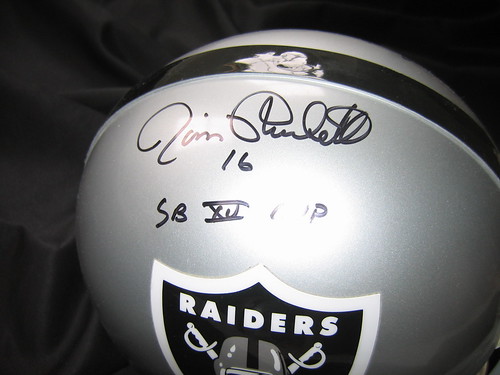 Jim Plunkett
16
SB XV MVP
RAIDERS